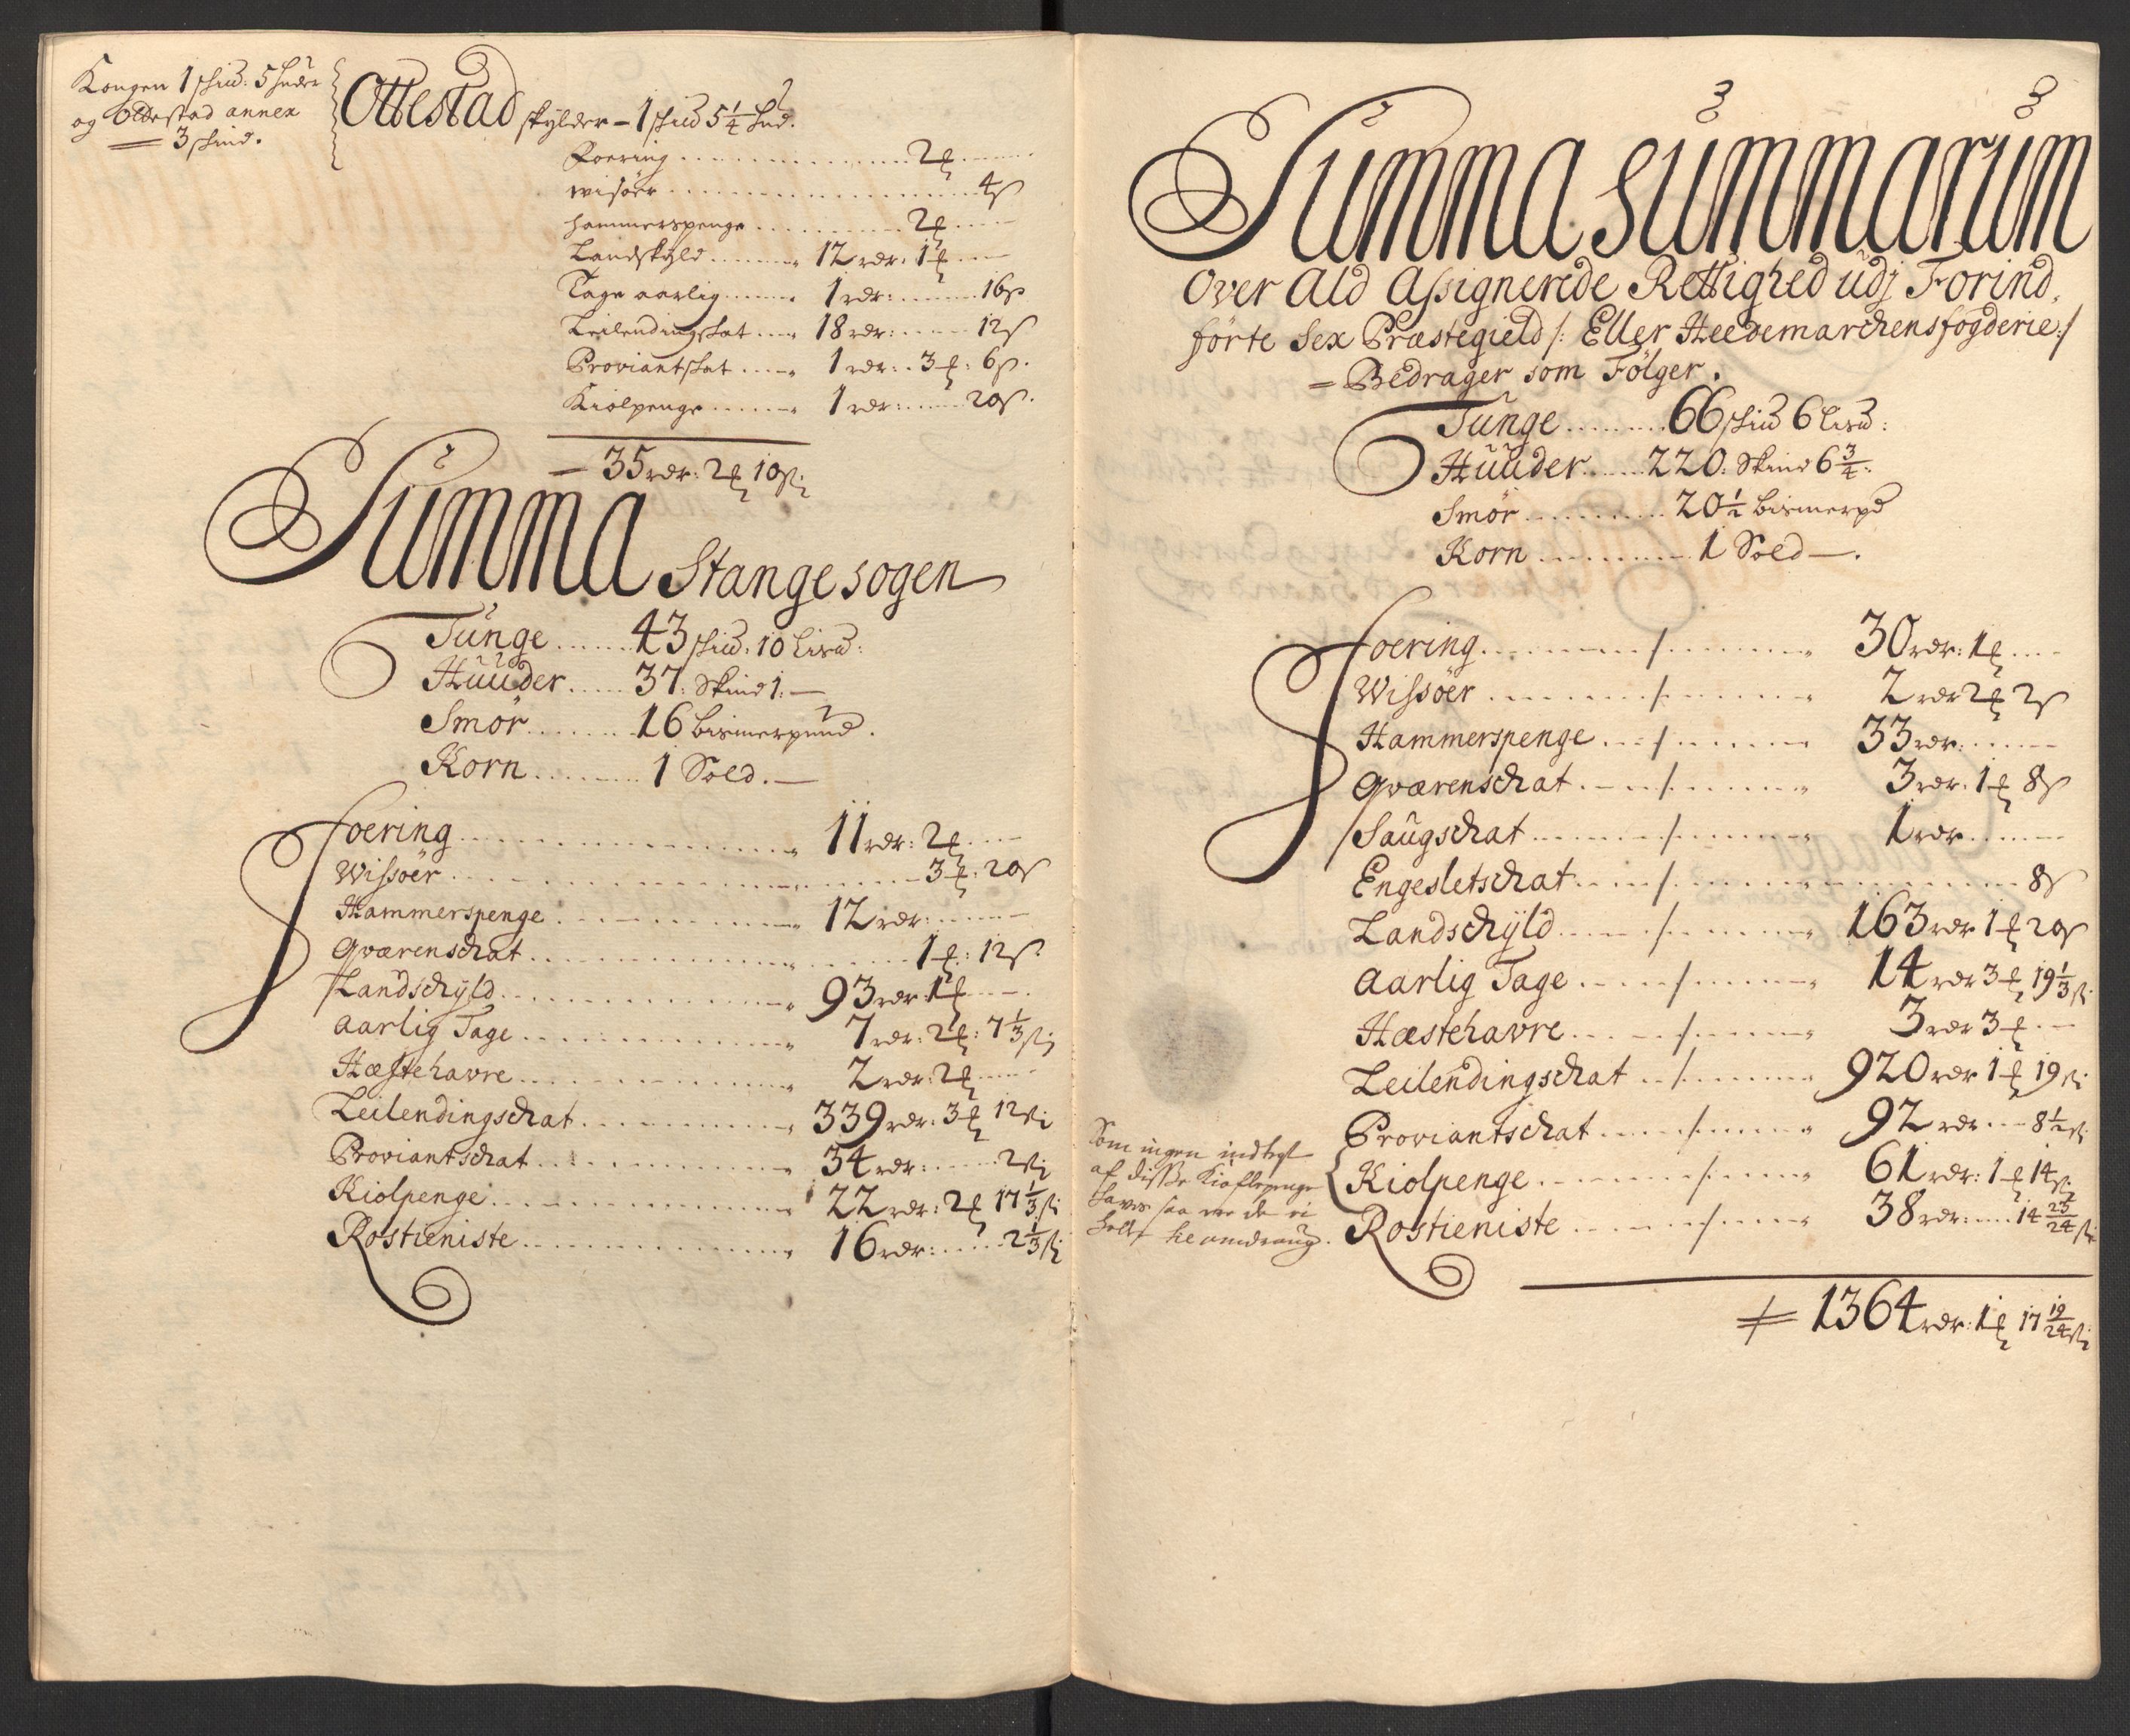 Kongen 1 skud: 5 huder
og Ottestad annex
= 3 skind.
Ottestad skylder – 1 skud 5 1/4 hud.
Foering ........ 2 ℔
wisöer ........ 4 ß
hammerspenge ........ 2 ℔
Landskyld ........ 12 rdr. 1 ℔
Tage aarlig ........ 1 rdr: ........ 16 ß
Leilendingskat ........ 18 rdr: ........ 12 ß
Proviantskat ........ 1 rdr: 3 ℔: 6 ß.
Kiolpenge ........ 1 rdr: ........ 20 ß.
= 35 rdr: 2 ℔ 10 ß:
Summa Stange sogen
Tunge ........ 43 skud. 10 Lisd:
Huuder ........ 37: Skind 1: –
Smör ........ 16 bismerpund.
Korn ........ 1 Sold. –
Foering ........ 11 rdr: 2 ℔
Wissöer ........ 3 ℔: 20 ß
Hammerspenge ........ 12 rdr:
Qværenschat ........ 1 ℔: 12 ß.
Landschÿld ........ 93 rdr 1 ℔
Aarlig Tage ........ 7 rdr: 2 ℔: 7 1/3 ß;
Hæstehavre ........ 2 rdr: 2 ℔
Leilendingschat ........ 339 rdr. 3 ℔ 12 ß;
Proviantschat ........ 34 rdr: ........ 2 ß;
Kiolpenge ........ 22 rdr: 2 ℔ 17 1/3 ß;
Rostieniste ........ 16 rdr: ........ 2 1/3 ß;
Summa Summarum
Over Ald Assignerede Rettighed udj Forind,
förte Sex Præstegield /: Eller Heedemarchens fogderie :/
= Bedrager som Fölger.
Tunge ........ 66 skud 6 Lisd:
Huuder ........ 220: Skind 6 3/4:
Smör ........ 20 1/2 bismerpd
Korn ........ 1 Sold –.
Foering ........ 30 rdr: 1 ℔
Wissöer ........ 2 rdr 2 ℔ 2 ß
Hammerspenge ........ 33 rdr:
Qværenschat ........ 3 rdr. 1 ℔ 8 ß
Saugschat ........ 1 rdr
Engesletschat ........ 8 ß
Landschÿld ........ 163 rdr 1 ℔ 20 ß
Aarlig Tage ........ 14 rdr 3 ℔ 19 1/3 ß.
Hæstehavre ........ 3 rdr 3 ℔
Leilendingschat ........ 920 rdr 1 ℔ 19 ß;
Proviantschat ........ 92 rdr ........ 8 1/2 ß;
Kiolpenge ........ 61 rdr: 1 ℔ 14 ß;
Rostieniste ........ 38 rdr: ........ 14 23/24 ß;
Som ingen indtegt
af disse Kioflepenge
haves saa
= 1364 rdr: 1 ℔ 17 19/24 ß;